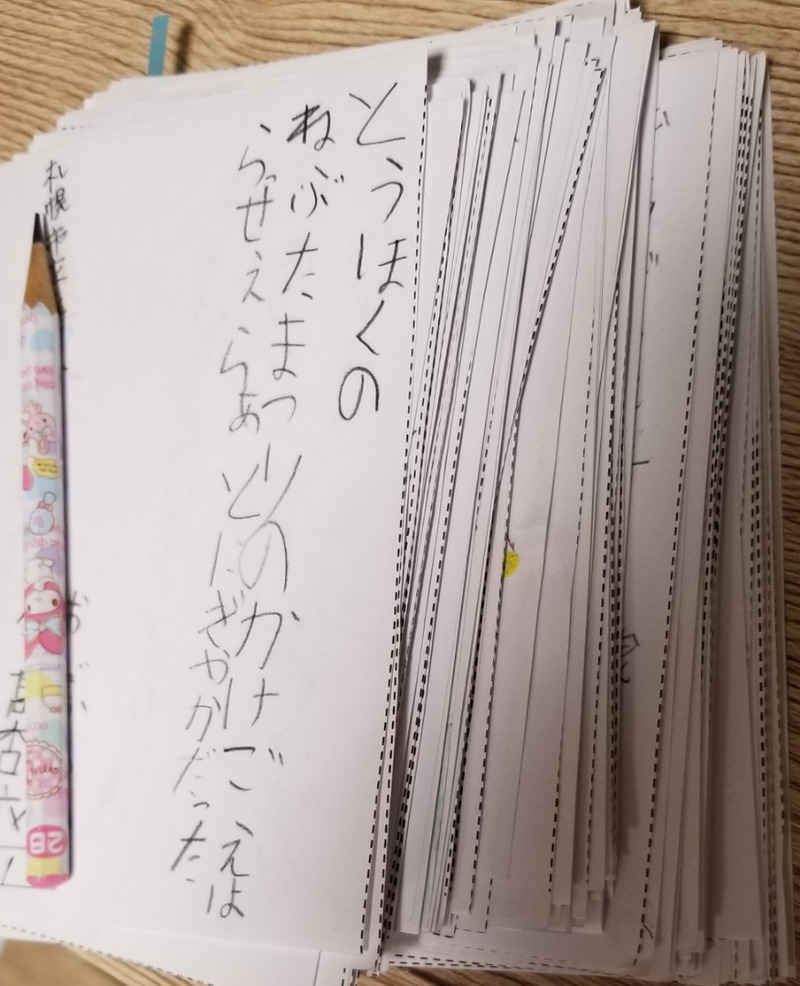 とうほくの
ねぶたまつりのかけごえは
らっせえらあとにぎやかだった
札幌市立
2B